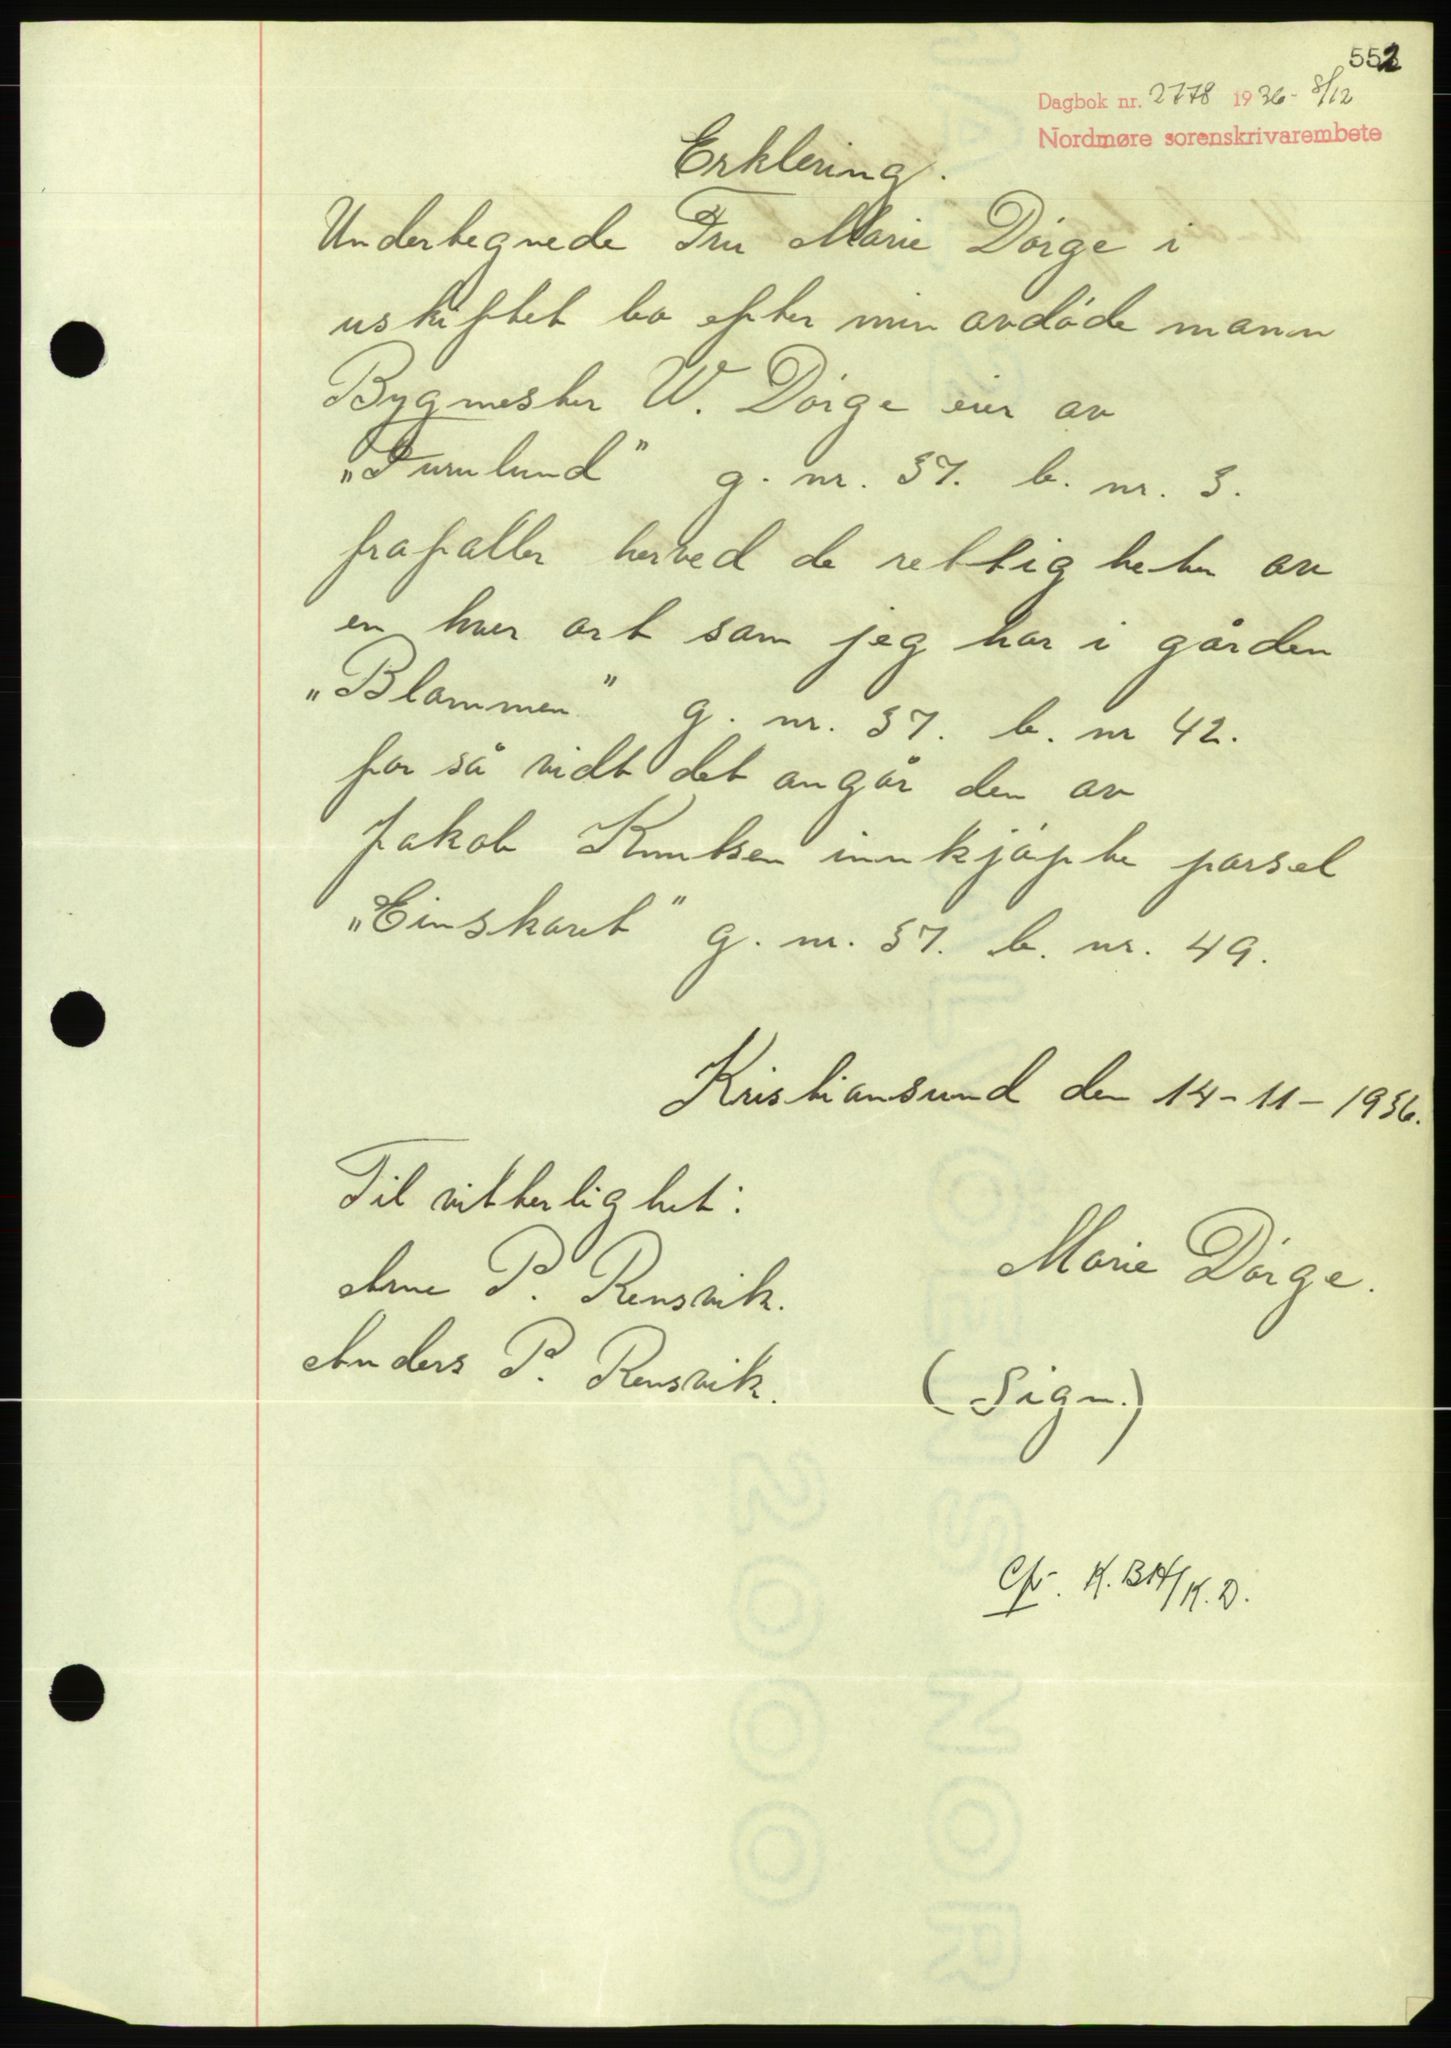 552
Dagbok nr. 2778 1936 - 8/12
Nordmøre sorenskrivarembete
Erklering.
Undertegnede Fru Marie Dørge i
uskiftet bo efter min avdøde mann
Bygmester W. Dørge eier av
„Furulund" g. nr. 37. b. nr. 3.
frafaller herved de rettigheter av
en hver art som jeg har i gården
„Blammen" g. nr. 37. b. nr 42.
for så vidt det angår den av
Jakob Knutsen innkjøpte parsel
„Einskaret" g. nr. 37. b. nr. 49.
Kristiansund den 14-11-1936.
Til vitterlighet:
Arne P. Rensvik.
Marie Dørge.
Anders P. Rensvik.
(Sign.)
Cfr. K. BH/K. D.